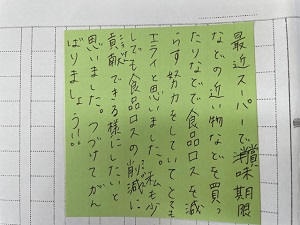 最近スーパーで賞味期限
などの近い物などを買っ
たりなどで食品ロスを減
らす努力をしていてとても
エライと思いました。私も少
しでも食品ロスの削減に
貢献できる様にしたいと
思いました。つづけてがん
ばりましょう!!